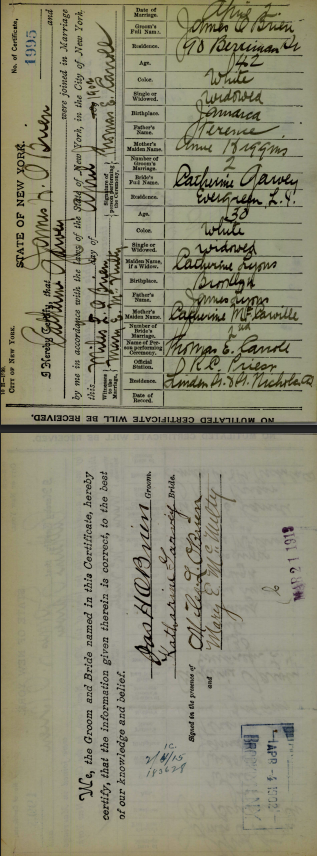 No. of Certificate,
1995
STATE OF NEW YORK.
CITY OF NEW YORK.
I Hereby Certify that James H. O'Brien and
Catherine Garvey were joined in Marriage
by me in accordance with the laws of the State of New York, in the City of New York,
this day of April 190
Witnesses to the Marriage. Miles L. O'Brien
Mary E. McAuley
Signature of person performing the Ceremony. Thomas E. Carroll
Date of Marriage. April 2
Groom's Full Name. James H O'Brien
Residence. 90 Berriman St
Age. 42
Color. White
Single or Widowed. Widowed
Birthplace. Jamaica
Father's Name. Terence
Mother's Maiden Name. Anne Higgins
Number of Groom's Marriage. 2
Bride's Full Name. Catherine Garvey
Residence. Evergreen L.I.
Age. 30
Color. White
Single or Widowed. Widowed
Maiden Name, if a Widow. Catherine Lyons
Birthplace. Brooklyn
Father's Name. James Lyons
Mother's Maiden Name. Catherine McCarville
Number of Bride's Marriage. 2nd
Name of Person performing Ceremony. Thomas E. Carroll
Official Station. R.C. Priest
Residence. Linden St. & St. Nicholas Av
Date of Record.
NO MUTILATED CERTIFICATE WILL BE RECEIVED.
We, the Groom and Bride named in this Certificate, hereby
certify, that the information given therein is correct, to the best
of our knowledge and belief.
Jas H O'Brien Groom.
Katharine Garvey Bride.
Signed in the presence of Miles L O'Brien
and Mary E. McAuley
MAR 21 1913
APR - 1902